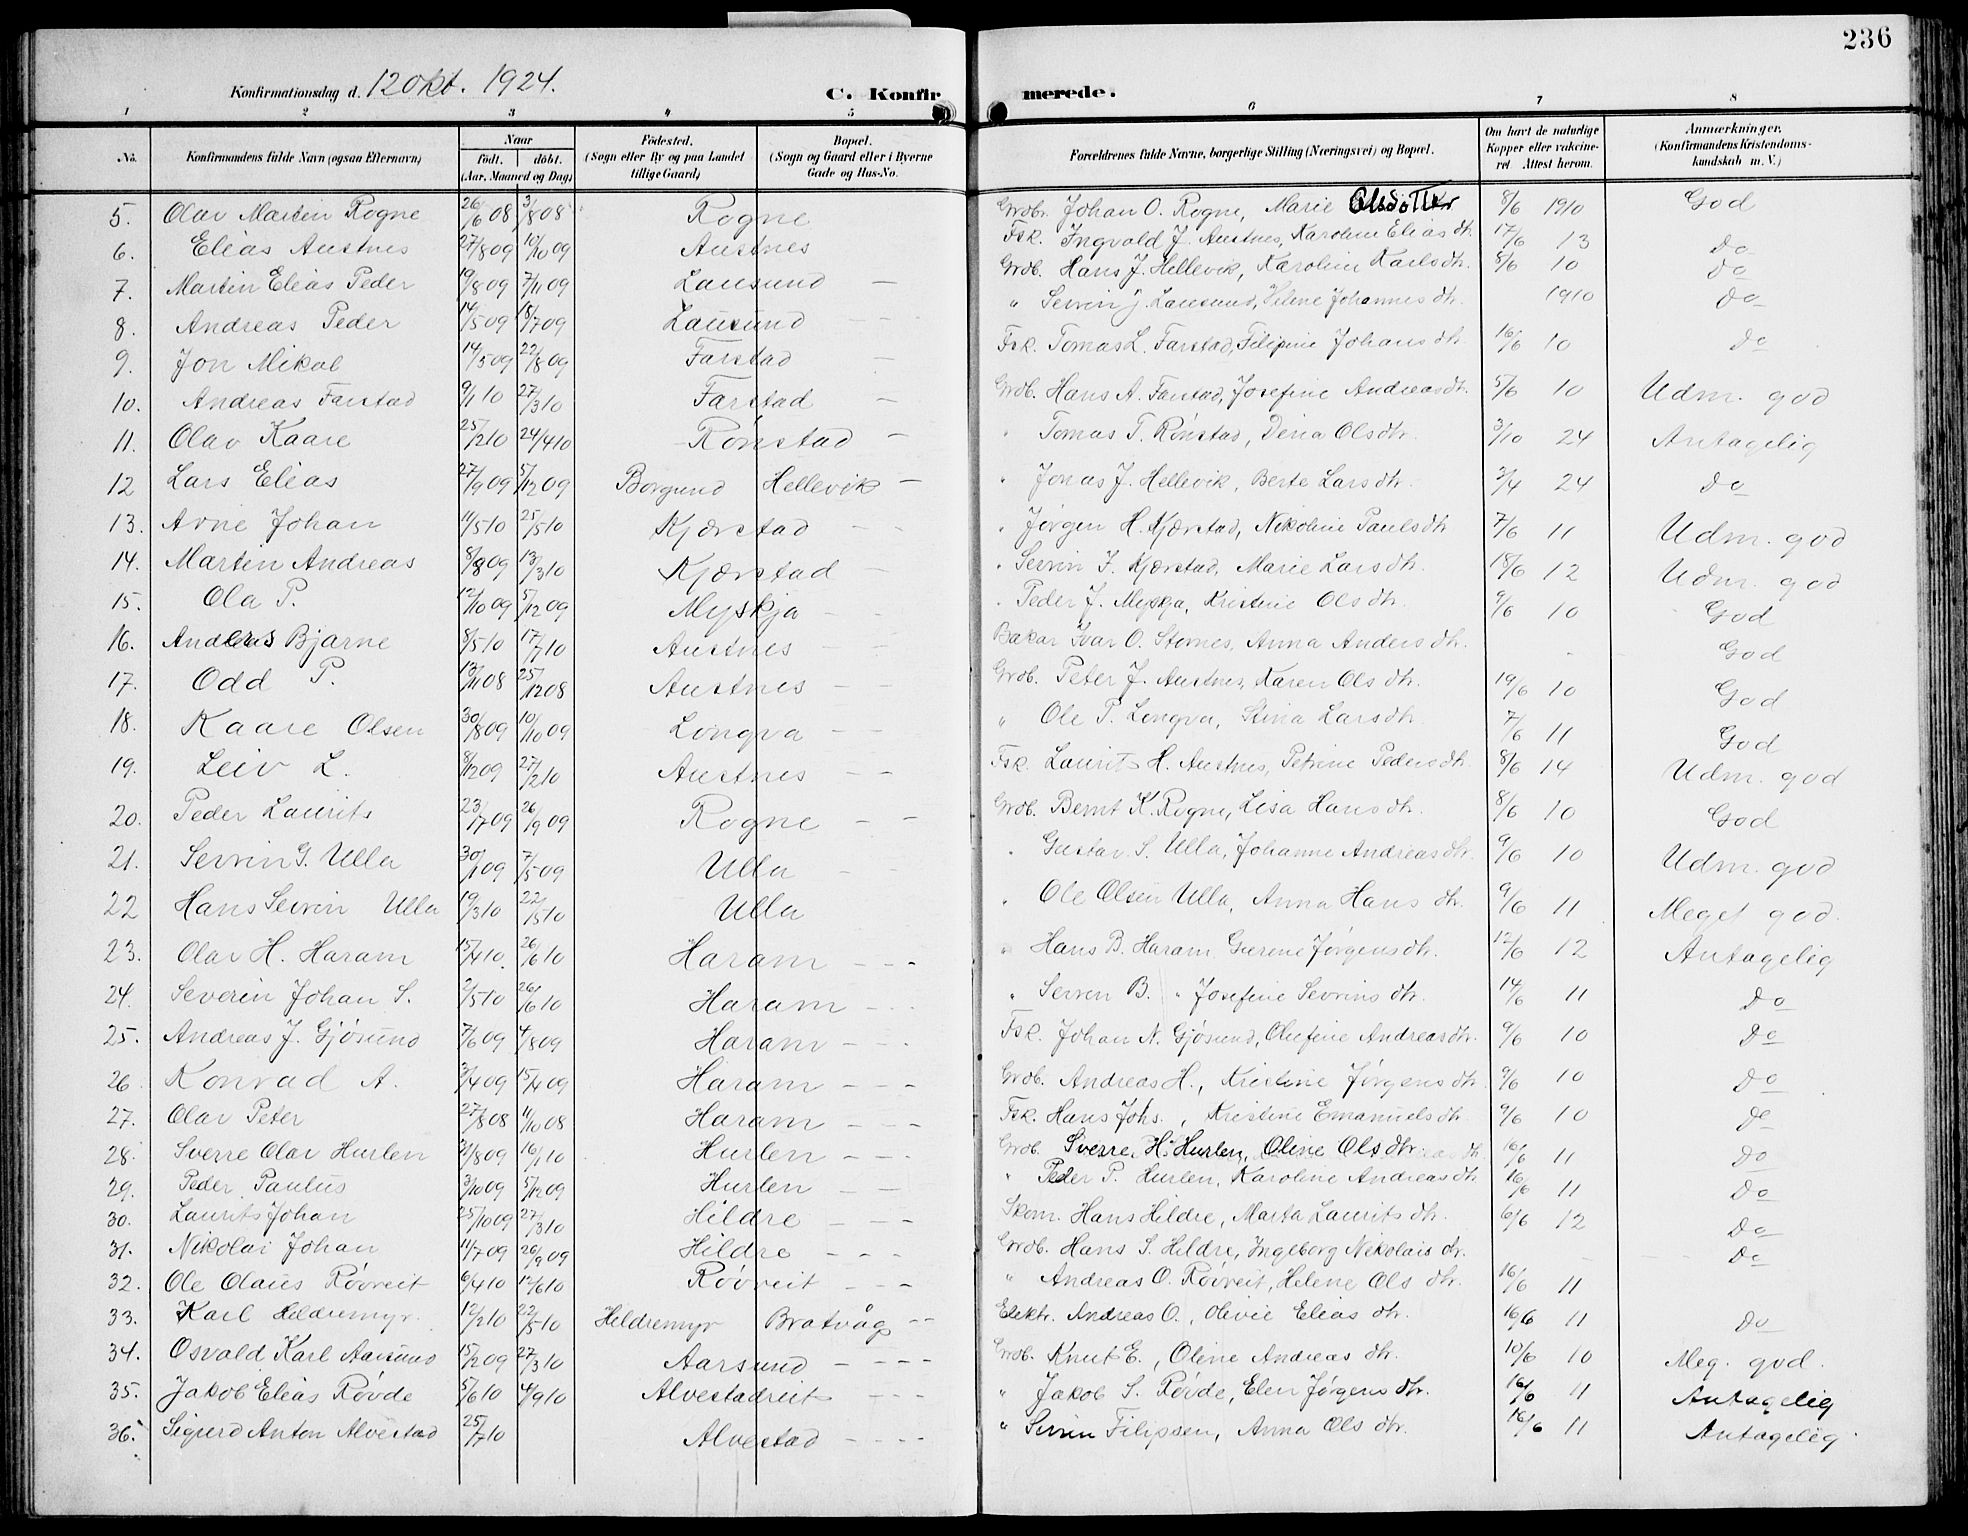 236
Konfirmationsdag d. 12 Okt. 1924.
C. Konfirmerede.
1 2 3 4 5 6 7 8
No. Konfirmandens fulde Navn (ogsaa Efternavn) Naar født. døbt. (Aar, Maaned og Dag) Fødested. (Sogn eller By og paa Landet tillige Gaard) Bopæl. (Sogn og Gaard eller i Byerne Gade og Hus-No. Forældrenes fulde Navne, borgerlige Stilling (Næringsvei) og Bopæl. Om havt de naturlige Kopper eller vaccineret Attest herom. Anmærkninger. (Konfirmandens Kristendomskundskab m. V.)
5. Olav Martin Rogne 26/6 08 3/8 08 Rogne Grdbr. Johan O. Rogne, Marie Olsdotter 8/6 1910 God
6. Elias Austnes 27/8 09 10/10 09 Austnes Fsk. Ingvald J. Austnes, Karoline Elias dtr. 17/6 13 Do
7. Martin Elias Peder 19/8 09 7/11 09 Lausund — Grdb. Hans J. Hellevik, Karoline Karls dtr. 8/6 10 Do
8. Andreas Peder 14/5 09 18/7 09 Lausund — — " Sevrin J. Lausund, Helene Johannes dtr. 1910 Do
9. Jon Mikal 14/5 09 22/8 09 Farstad — Fsk. Tomas L. Farstad, Filipine Johans dtr 16/6 10 Do
10. Andreas Farstad 9/1 10 27/3 10 Farstad — Grdb. Hans A. Farstad, Josefine Andreas dtr. 5/6 10 Udm. god
11. Olav Kaare 25/2 10 24/4 10 Rønstad — " Tomas T. Rønstad, Dina Olsdtr. 3/10 24 Antagelig
12 Lars Elias 27/9 09 5/12 09 Borgund Hellevik — " Jonas J. Hellevik, Berte Larsdtr. 3/4 24 Do
13. Arne Johan 11/5 10 25/5 10 Kjærstad — — " Jørgen H. Kjærstad, Nikoline Paulsdtr 7/6 11 Udm. god
14. Martin Andreas 8/8 09 13/3 10 Kjærstad — " Sevrin F. Kjærstad, Marie Larsdtr. 18/6 12 Udm. god
15. Ola P. 12/10 09 5/12 09 Myskja — " Peder J. Myskja, Kristine Olsdtr. 9/6 10 God
16. Andreas Bjarne 8/5 10 17/7 10 Austnes — — Bakar Ivar O. Stornes, Anna Anders dtr. - God
17. Odd P. 13/11 08 25/12 08 Austnes — — Grdb. Peter J. Austnes, Karen Olsdtr. 19/6 10 God
18. Kaare Olsen 30/8 09 10/10 09 Longva — — " Ole P. Longva, Stina Larsdtr. 7/6 11 God
19. Leiv L. 8/12 09 27/2 10 Austnes — — Fsk. Laurits H. Austnes, Petrine Peders dtr. 8/6 14 Udm. god
20. Peder Laurits 23/7 09 26/9 09 Rogne — — Grdb. Bernt K. Rogne, Lisa Hansdtr. 8/6 10 God
21. Sevrin G. Ulla 30/1 09 7/5 09 Ulla — " Gustav S. Ulla, Johanne Andreasdtr. 9/6 10 Udm. god
22 Hans Sevrin Ulla 19/3 10 22/5 10 Ulla " Ole Olsen Ulla, Anna Hans dtr. 9/6 11 Meget god.
23. Olav H. Haram 15/4 10 26/6 10 Haram — - - " Hans B. Haram, Gurene Jørgensdtr. 12/6 12 Antagelig
24. Severin Johan S. 2/5 10 26/6 10 Haram — - - " Sevren B. " Josefine Sevrins dtr. 14/6 11 Do
25. Andreas J. Gjøsund 7/6 09 4/8 09 Haram — — - Fsk. Johan N. Gjøsund, Olufine Andreasdtr. 9/6 10 Do
26. Konrad A. 3/4 09 15/4 09 Haram — — - Grdb. Andreas H., Kristine Jørgens dtr. 9/6 10 Do
27. Olav Peter 27/8 08 11/10 08 Haram — - - Fsk. Hans Johs., Kristine Emanuels dtr. 9/6 10 do
28. Sverre Olav Hurlen 31/8 09 16/1 10 Hurlen — - - Grdb. Sverre H. Hurlen, Oline Ols dtr. 16/6 11 Do
29. Peder Paulus 3/10 09 5/12 09 Hurlen — — " Peder P. Hurlen, Karoline Andreas dtr 16/6 11 Do
30. Laurits Johan 25/10 09 27/3 10 Hildre — - - Skom. Hans Hildre, Marta Laurits dtr. 6/6 12 Do
31. Nikolai Johan 11/7 09 26/9 09 Hildre — - - Grdb. Hans S. Hildre, Ingeborg Nikolais dtr. — Do
32. Ole Olaus Røvreit 6/4 10 12/6 10 Røvreit — — " Andreas O. Røvreit, Helene Ols dtr. 16/6 11
33. Karl Hildremyr 12/2 10 22/5 10 Hildremyr Bratvåg - - Elektr. Andreas O., Olivie Elias dtr. 16/6 11 Do
34. Osvald Karl Aarsund 15/12 09 27/3 10 Aarsund — — — Grdb. Knut E., Oline Andreas dtr. 10/6 10 Meg. god.
35. Jakob Elias Røvde 5/6 10 4/9 10 Alvestadreit — - - " Jakob S. Røvde, Elen Jørgens dtr. 16/6 11 Antagelig
36. Sigurd Anton Alvestad 25/7 10 Alvestad — - - - " Sevrin Filipsen, Anna Ols dtr. 16/6 11 Antagelig.